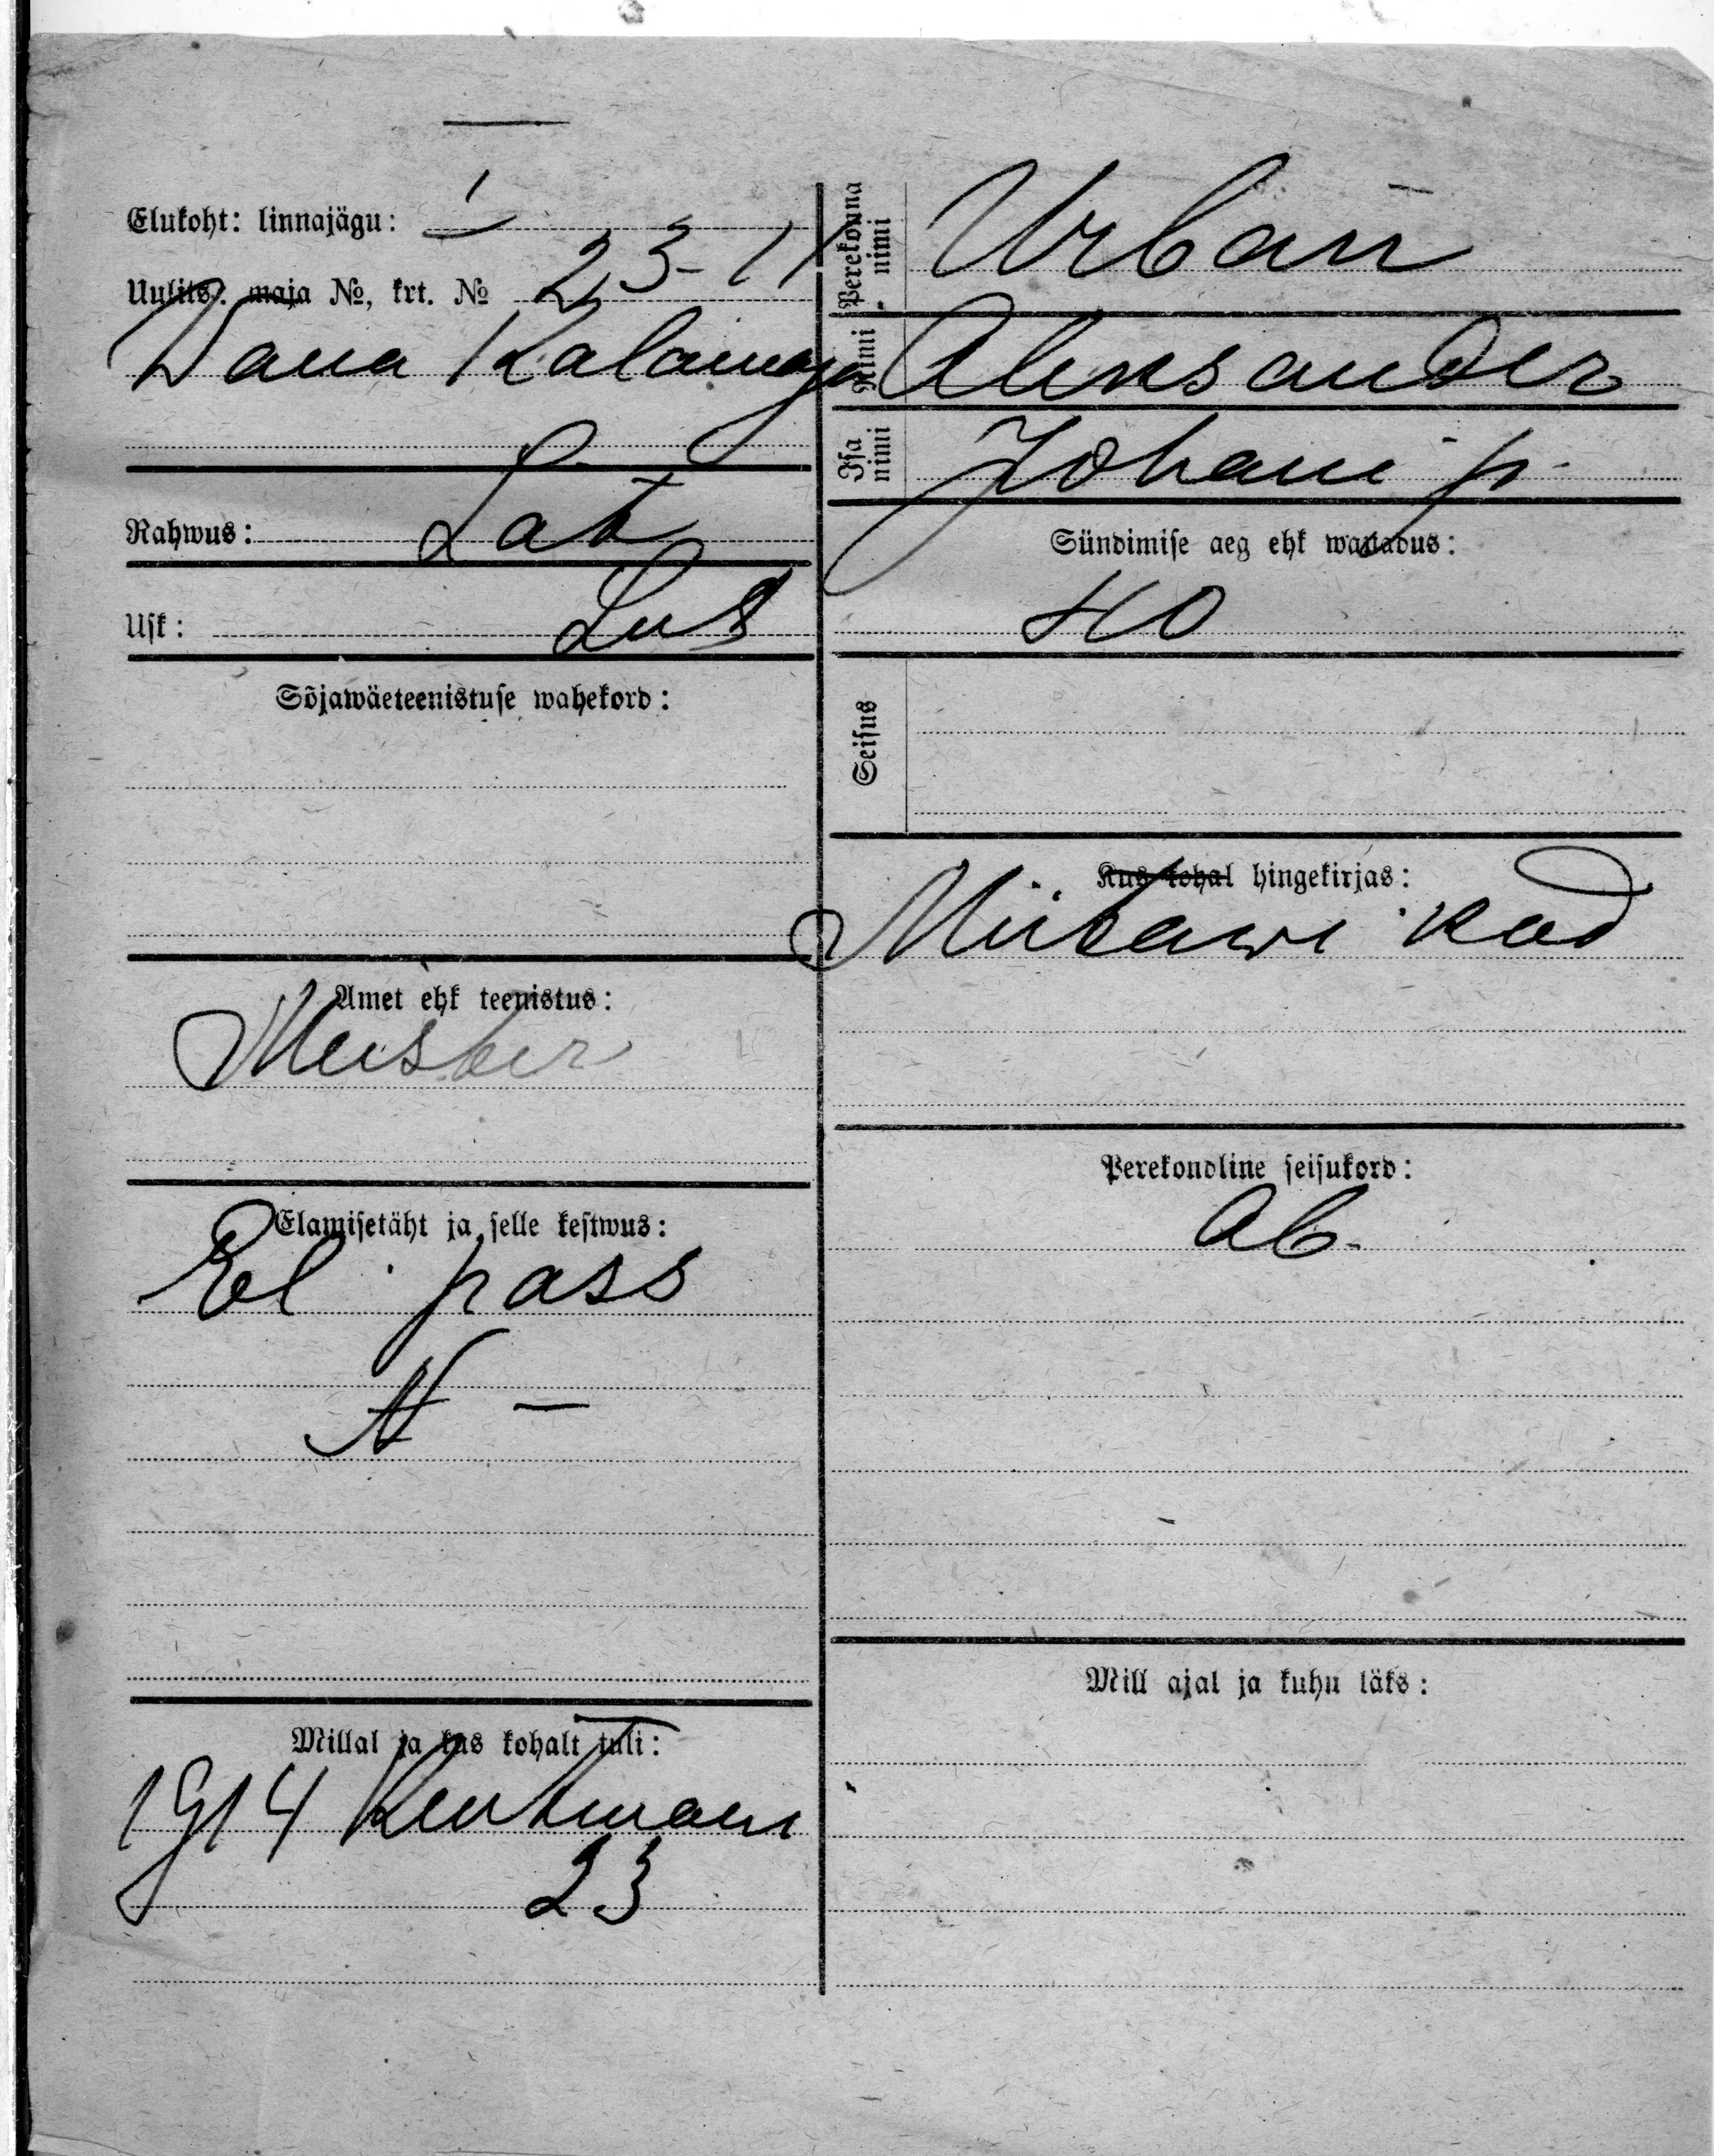 Elukoht: linnajägu: I
Uulits, maja №, krt. № 23-11
Wana Kalamaja
Rahwus: Lät
Usk: Lut
Sõjawäeteenistuse wahekord:
Amet ehk teenistus:
Meister
Elamisetäht ja selle kestwus:
El. pass
N —
Millal ja kus kohalt tuli:
1914 Kentmani
23
Perekonna nimi Urban
Nimi Aleksander
Isa nimi Johani p.
Sündimise aeg ehk wanadus:
40
Seisus
Kus kohal hingekirjas:
Miitawi kod
Perekondline seisukord:
Ab.
Mill ajal ja kuhu läks: